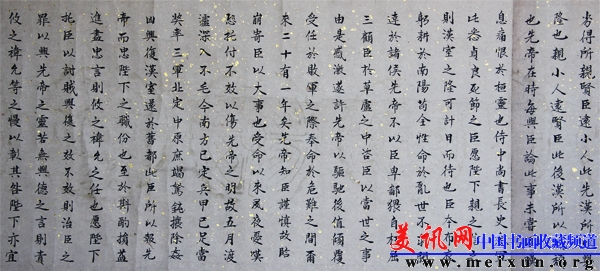 劣得所親賢臣遠小人此先漢所以
隆也親小人遠賢臣此後漢所以
也先帝在時每與臣論此事未嘗
息痛恨於桓靈也侍中尚書長史
此悉貞良死節之臣願陛下親之
則漢室之隆可計日而待也臣本布
躬耕於南陽苟全性命於亂世不
達於諸侯先帝不以臣卑鄙猥自枉屈
三顧臣於草廬之中咨臣以當世之事
由是感激遂許先帝以驅馳後值傾覆
受任於敗軍之際奉命於危難之間爾
來二十有一年矣先帝知臣謹慎故臨
崩寄臣以大事也受命以來夙夜憂嘆
恐托付不效以傷先帝之明故五月渡
瀘深入不毛今南方已定兵甲已足當
獎率三軍北定中原庶竭駑鈍攘除姦
凶興復漢室還於舊都此臣所以報先
帝而忠陛下之職份也至於斟酌損益
進盡忠言則攸之禕允之任也願陛下
托臣以討賊興復之效不效則治臣之
罪以興先帝之靈若無興德之言則責
攸之禕允等之慢以彰其咎陛下亦宜
美讯网 中国书画收藏频道
www.meixun.org